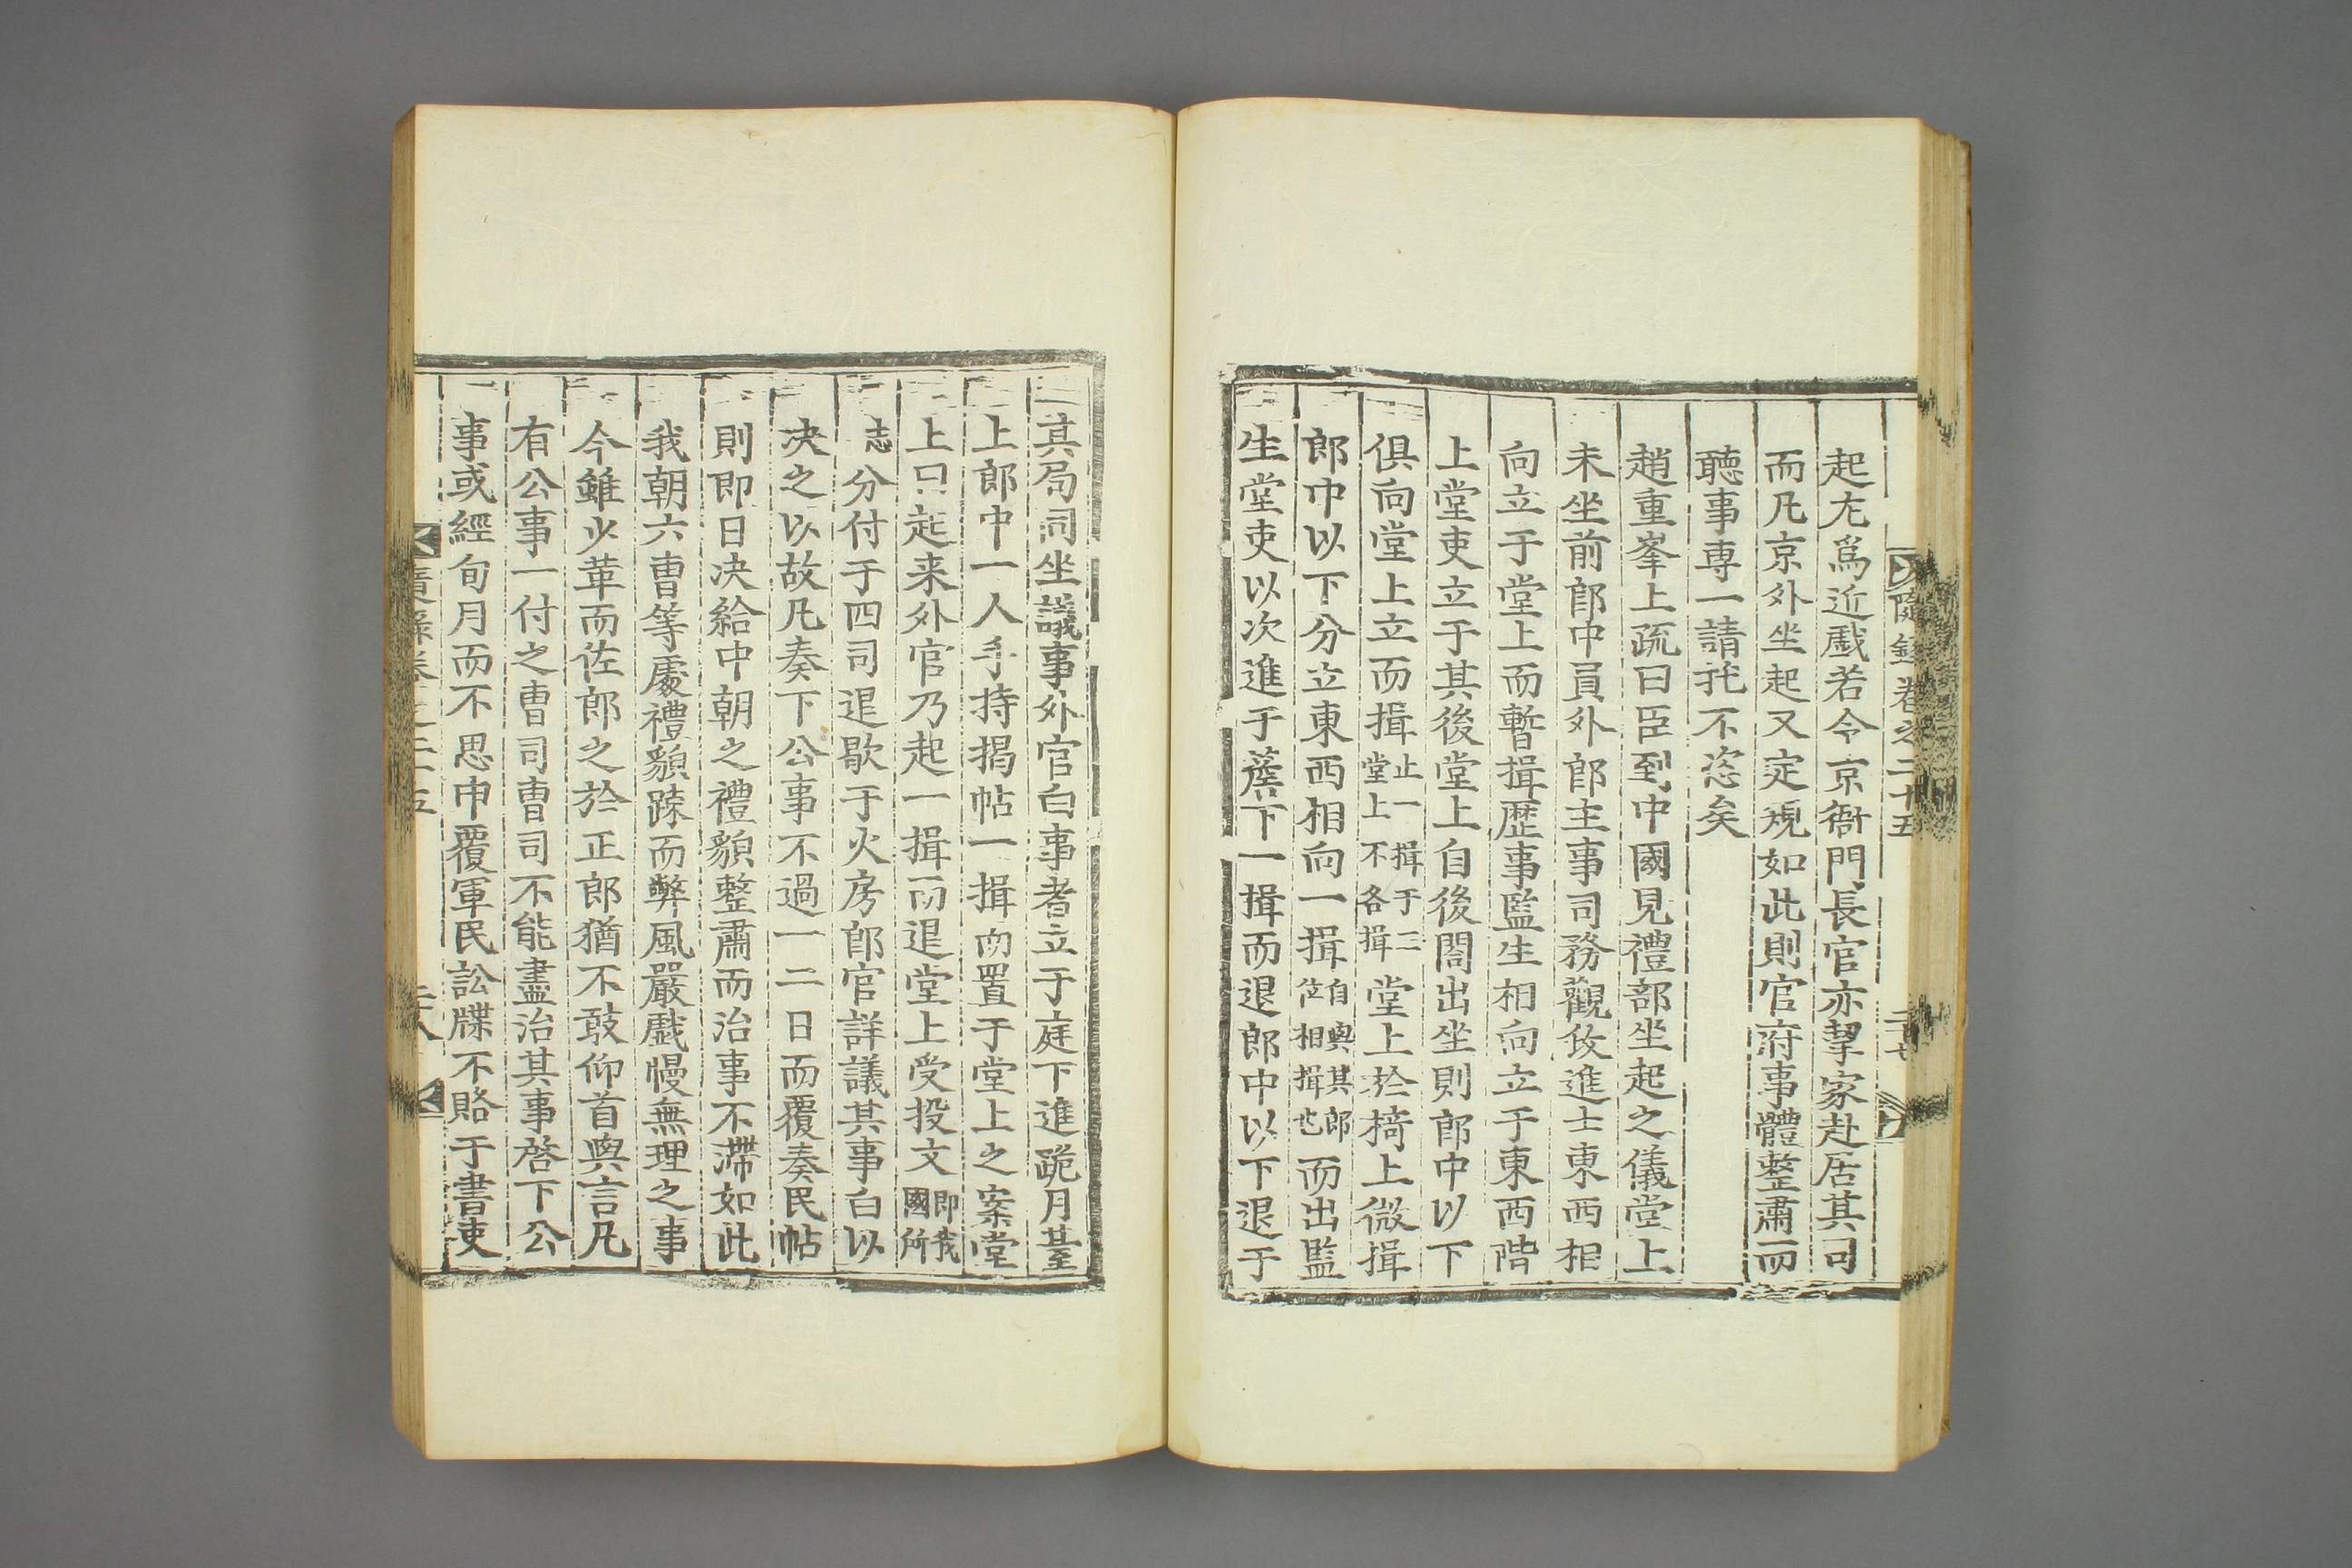 隨錄卷之二十五
二十七
起尤爲近戱若令京衙門長官亦挈家赴居其司
而凡京外坐起又定規如此則官府事體整肅而
聽事專一請托不恣矣
趙重峯上疏曰臣到中國見禮部坐起之儀堂上
未坐前郎中員外郎主事司務觀政進士東西相
向立于堂上而暫揖歷事監生相向立于東西階
上堂吏立于其後堂上自後閤出坐則郎中以下
俱向堂上立而揖止一揖于二堂上不各揖堂上於椅上微揖
郎中以下分立東西相向一揖自與其郎位相揖也而出監
生堂吏以次進于簷下一揖而退郎中以下退于
其局同坐議事外官白事者立于庭下進跪月臺
上郎中一人手持揭帖一揖而置于堂上之案堂
上曰起来外官乃起一揖而退堂上受投文卽我國所
志分付于四司退歇于火房郎官詳議其事白以
决之以故凡奏下公事不過一二日而覆奏民帖
則即日决給中朝之禮貌整肅而治事不滯如此
我朝六曹等處禮貌踈而弊風嚴戱慢無理之事
今雖少革而佐郎之於正郎猶不敢仰首與言凡
有公事一付之曹司曹司不能盡治其事啓下公
事或經旬月而不思申覆軍民訟牒不賂于書吏
卷之二十五
二十八